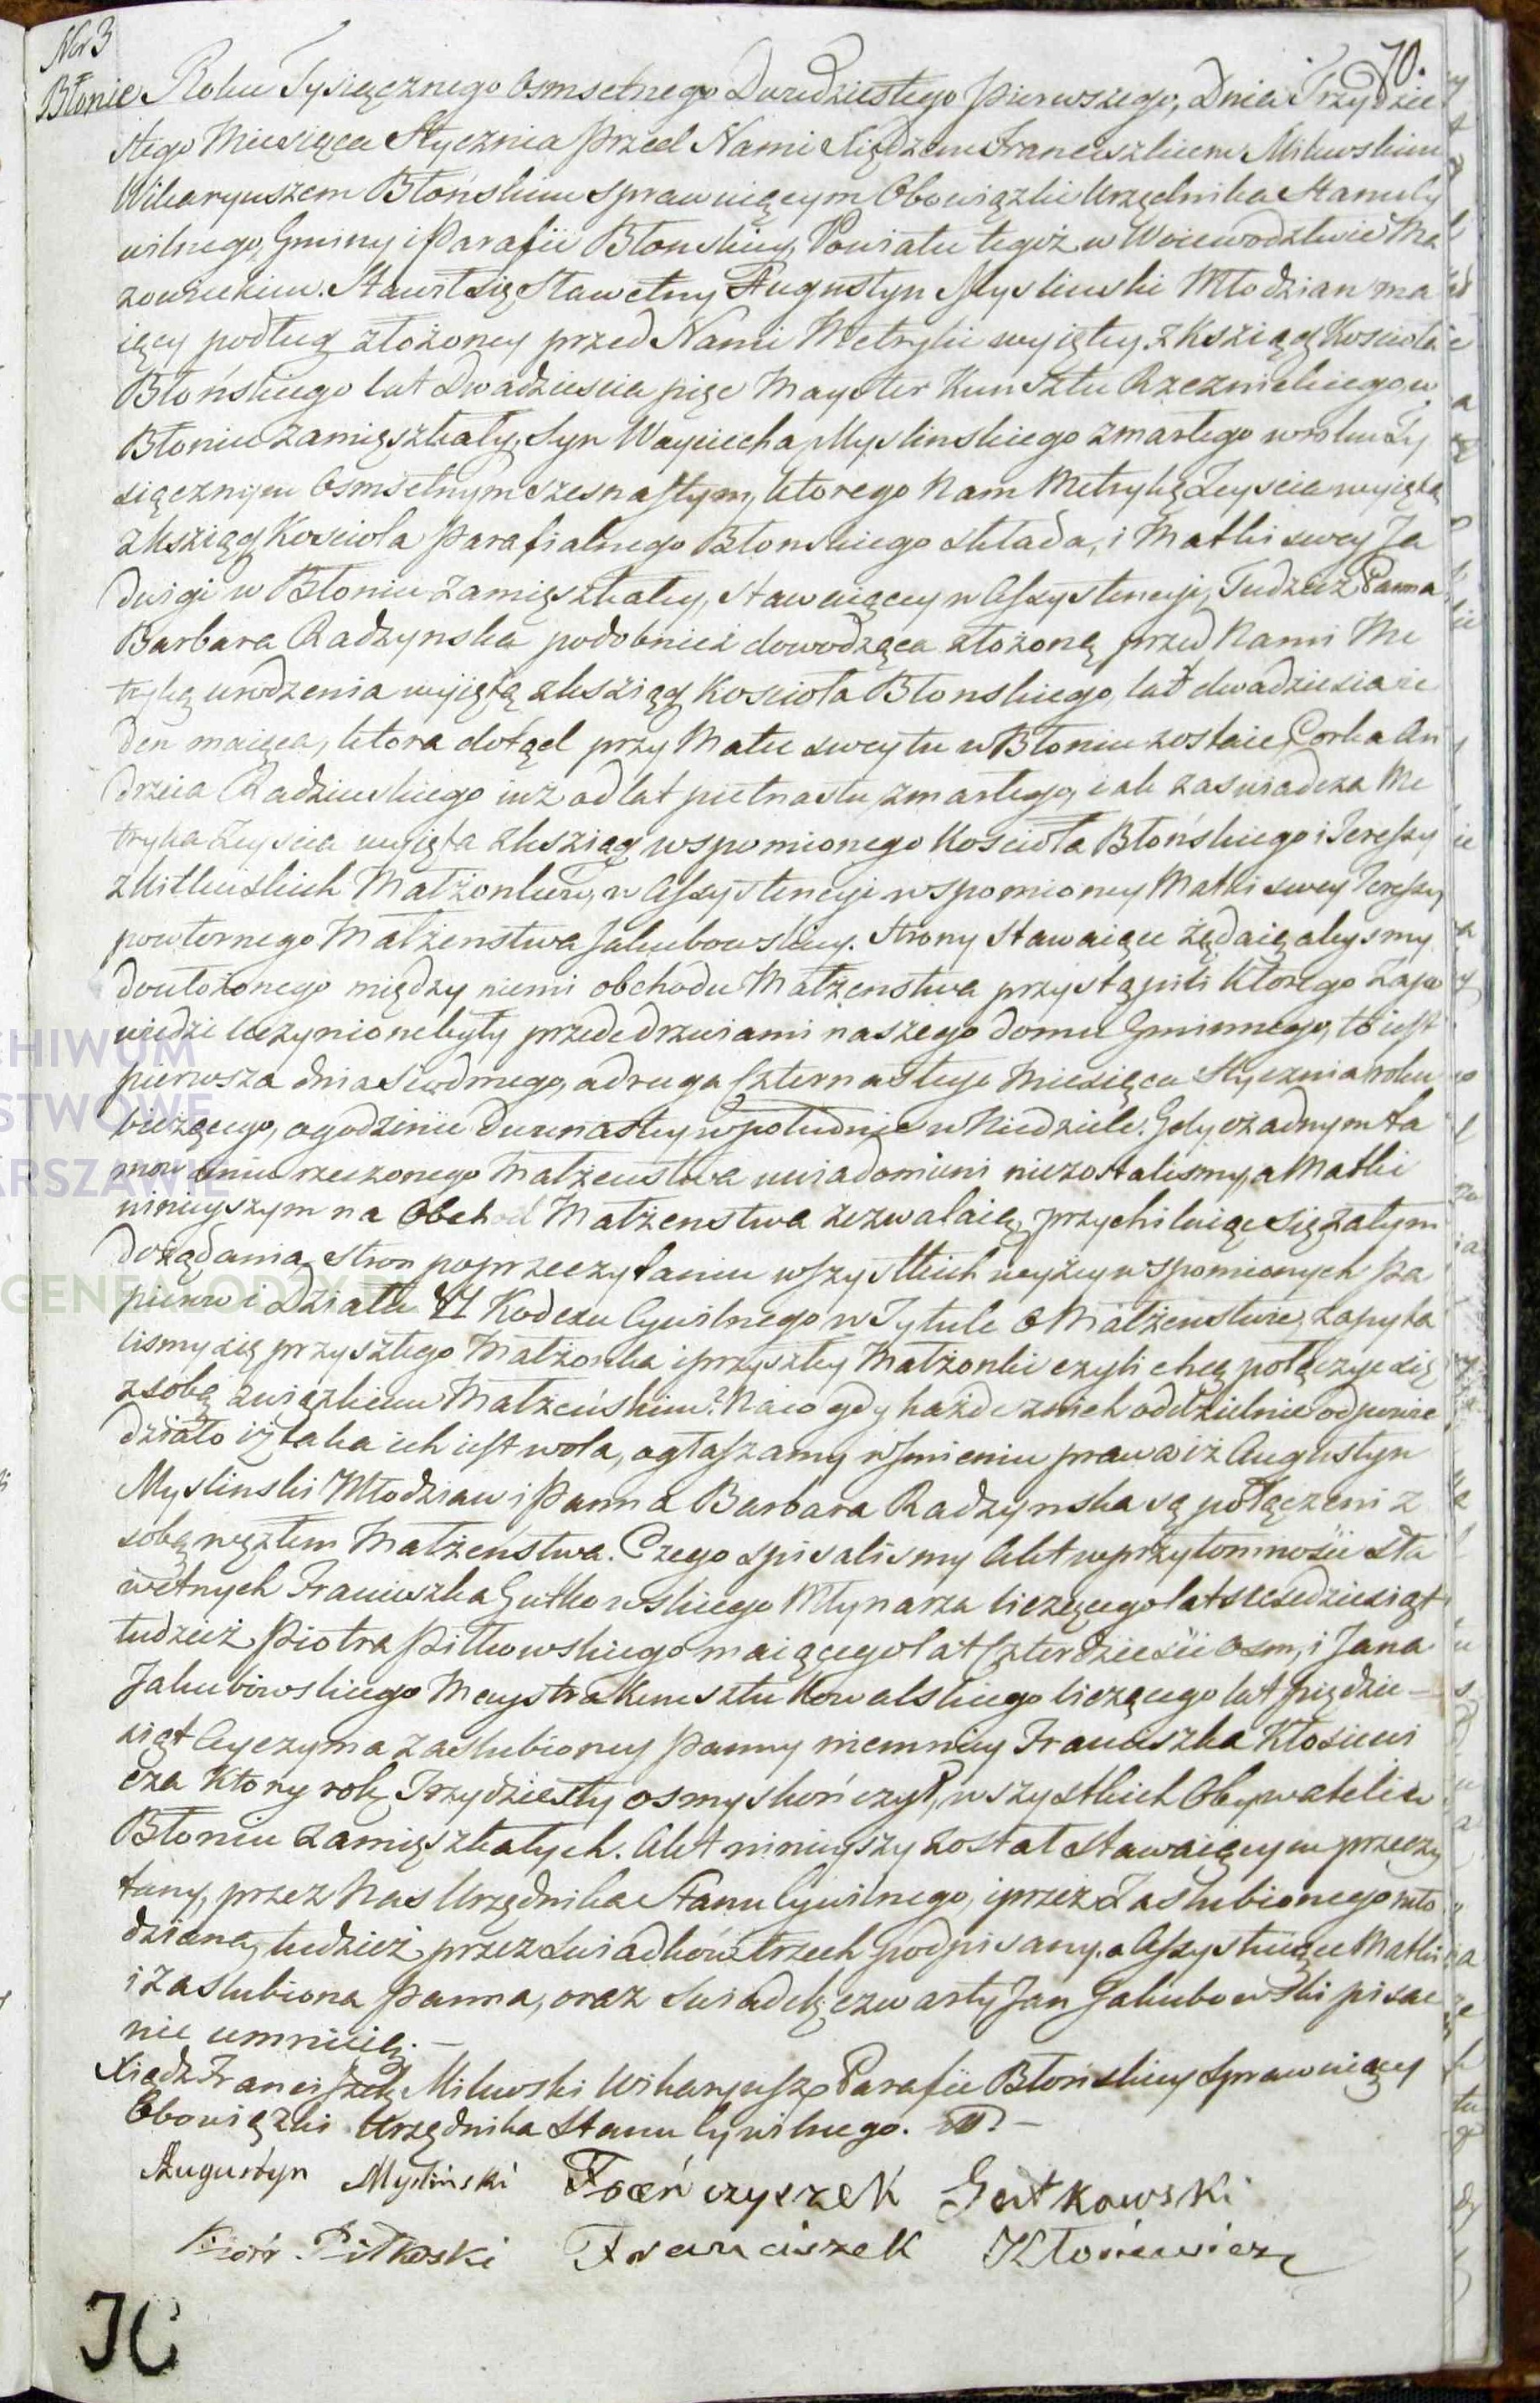 Nor 3
70.
Błonie Roku Tysiącznego Osmsetnego Dwudziestego Pierwszego, Dnia Trzydzie
stego Miesiąca Stycznia Przed Nami Xiędzem Franciszkiem Milewskim
Wikaryuszem Błońskim sprawuiącym Obowiązki Urzędnika Stanu Cy
wilnego, Gminy i Parafii Błonskiey, Powiatu tegoż w Woiewodztwie Ma
zowieckim. Stawił się Sławetny Augustyn Myslinski Młodzian ma
iący podług złożoney przed Nami Metryki wyiętey zKsziąg Kosciola
Błońskiego lat Dwadziescia pięc Mayster Kunsztu Rzeznickiego w
Błoniu zamięszkały, Syn Woyciecha Myslinskiego zmarłego w roku Ty
siącznym Osmsetnym szesnastym, ktorego Nam Metrykę Zeyscia wyiętą
z ksziąg Kosciola Parafialnego Błonskiego składa, i Matki swey Ja
dwigi w Błoniu zamięszkałey, stawaiącey w Assystencyi, Tudzież Panna
Barbara Radzynska podobnież dowodząca złożoną przed Nami Me
tryką urodzenia wyiętą z ksziąg Kosciola Błonskiego, lat dwadziescia ie
den maiąca, ktora dotąd przy Matce swey tu w Błoniu zostaie, Corka An
drzeia Radzinskiego iuż od lat pietnastu zmarłego, iak zaswiadcza Me
tryka Zeyscia wyięta z ksziąg wspomionego Kosciola Błońskiego i Teressy
z Małżonkow, w Assystencyi wspomioney Matki swey Teressy,
powtornego Małżenstwa Jakubowskiey. Strony stawaiące żądaią abysmy
do ułożonego między niemi obchodu Małżenstwa przystąpili ktorego zapo
wiedzi uczynione były przede drzwiami naszego domu Gminnego, to iest
pierwsza dnia siodmego, a druga Czternastego Miesiąca Stycznia roku
bieżącego, o godzinie dwunastey w południe w Niedziele. Gdy o żadnym ta
mowaniu rzeczonego Małżenstwa uwiadomieni niezostalismy, a Matki
ninieyszym na Obchod Małżenstwa zezwalaią, przychilaiąc się zatym
do żądania stron po przeczytaniu wszystkich wyżey wspomionych Pa
pierow i Działu VI Kodexu Cywilnego w Tytule o Małżenstwie, zapyta
lismy się przyszłego Małżonka i przyszłey Małżonki czyli chcą połączyc się
z sobą związkiem Małżeńskim? Na co gdy każde z nich oddzielnie odpowie
działo iż taka ich iest wola, ogłaszamy w Imieniu prawa iż Augustyn
Myslinski Młodzian i Panna Barbara Radzynska są połączeni z
sobą węzłem Małżeństwa. Czego spisalismy Akt w przytomnosci Sła
wetnych Franciszka Gutkowskiego Młynarza liczącego lat szescdziesiąt
tudzież Piotra Pitkowskiego maiącego lat Czterdziesci osm, i Jana
Jakubowskiego Maystra Kunsztu Kowalskiego liczącego lat pięcdzie
siąt Oyczyma zaslubioney Panny niemniey Franciszka Kłosiewi
cza ktory rok Trzydziesty osmy skończył, wszystkich Obywateli w
Błoniu zamięszkałych. Akt ninieyszy został stawaiącym przeczy
tany, przez Nas Urzędnika Stanu Cywilnego, i przez Zaslubionego mło
dziana, tudzież przez swiadków trzech podpisany, a Assystuiące Matki
i zaslubiona Panna, oraz swiadek czwarty Jan Jakubowski pisac
nie umieią.
Xiądz Franciszek Milewski Wikaryusz Parafii Błońskiey Sprawuiący
Obowiązki Urzędnika Stanu Cywilnego.
Augustyn Mysliński Frąnczyszek Gutkowski
Piotr Pitkoski Franciszek Kłosiewicz
JC